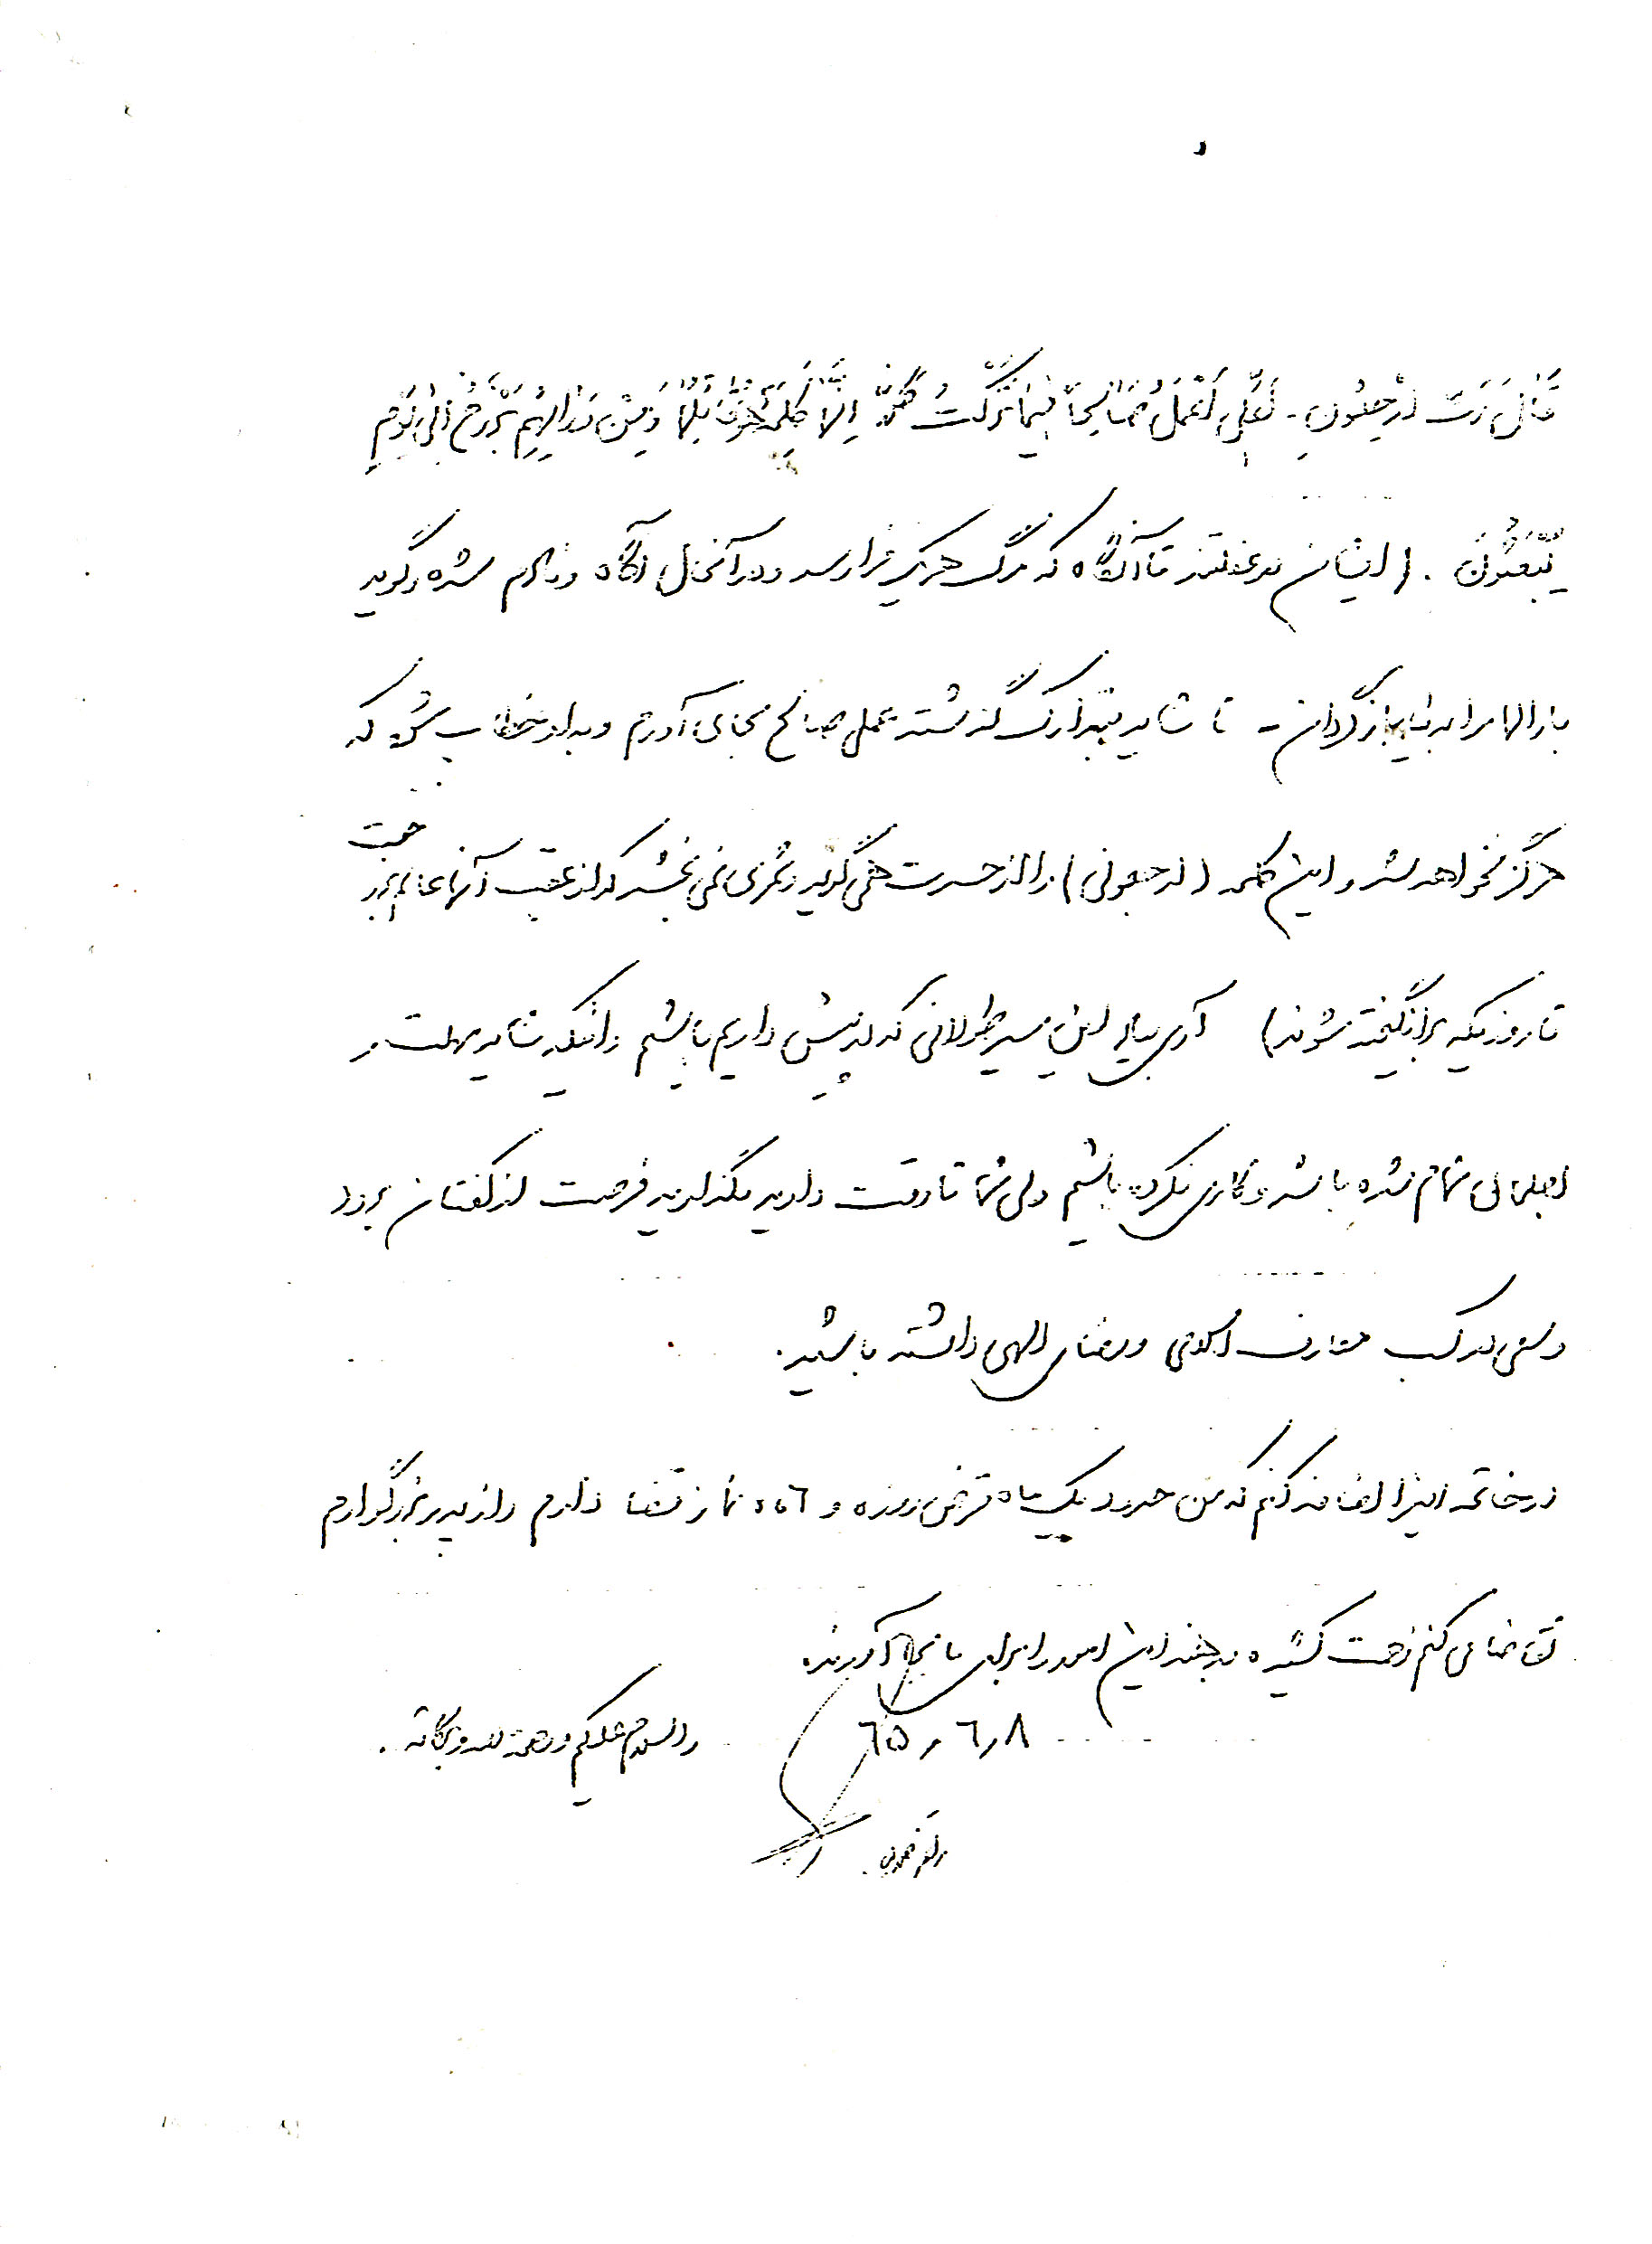 قَالَ رَبِّ ارْجِعُونِ - لَعَلِّي أَعْمَلُ صَالِحاً فِيمَا تَرَكْتُ كَلَّا إِنَّهَا كَلِمَةٌ هُوَ قَائِلُهَا وَمِنْ وَرَائِهِمْ بَرْزَخٌ إِلَىٰ يَوْمِ
يُبْعَثُونَ . ( ایشان در غفلتند تا آنگاه که مرگ هریک فرا رسد و در آنحال آگاه و نادم شده و گوید
بارالها مرا بدنیا بازگردان - تا شاید بتدارک گذشته عملی صالح بجای آورم و به او خطاب شود که
هرگز نخواهد شد و این کلمه (ارجعونی) را از حسرت همی گوید و ثمری نمی بخشد که از عقب آنها عالم برزخ است
تا روزیکه برانگیخته شوند) آری بیاد این مسیر طولانی که در پیش داریم باشیم و اینکه شاید مهلت و
اجل مان تمام شده باشد و کاری نکرده باشیم ولی شما تا وقت دارید نگذارید فرصت از کفتان برود
و سعی در کسب معارف اسلامی و رضای الهی داشته باشید.
در خاتمه اینرا اضافه کنم که من حدود یک ماه قرض روزه و نماز قضا دارم و از پدر بزرگوارم
تقاضا می کنم زحمت کشیده هر چند این امور را برای ما بجا آورند.
۶۵٫۶٫۸ والسلام علیکم و رحمة الله و برکاته .